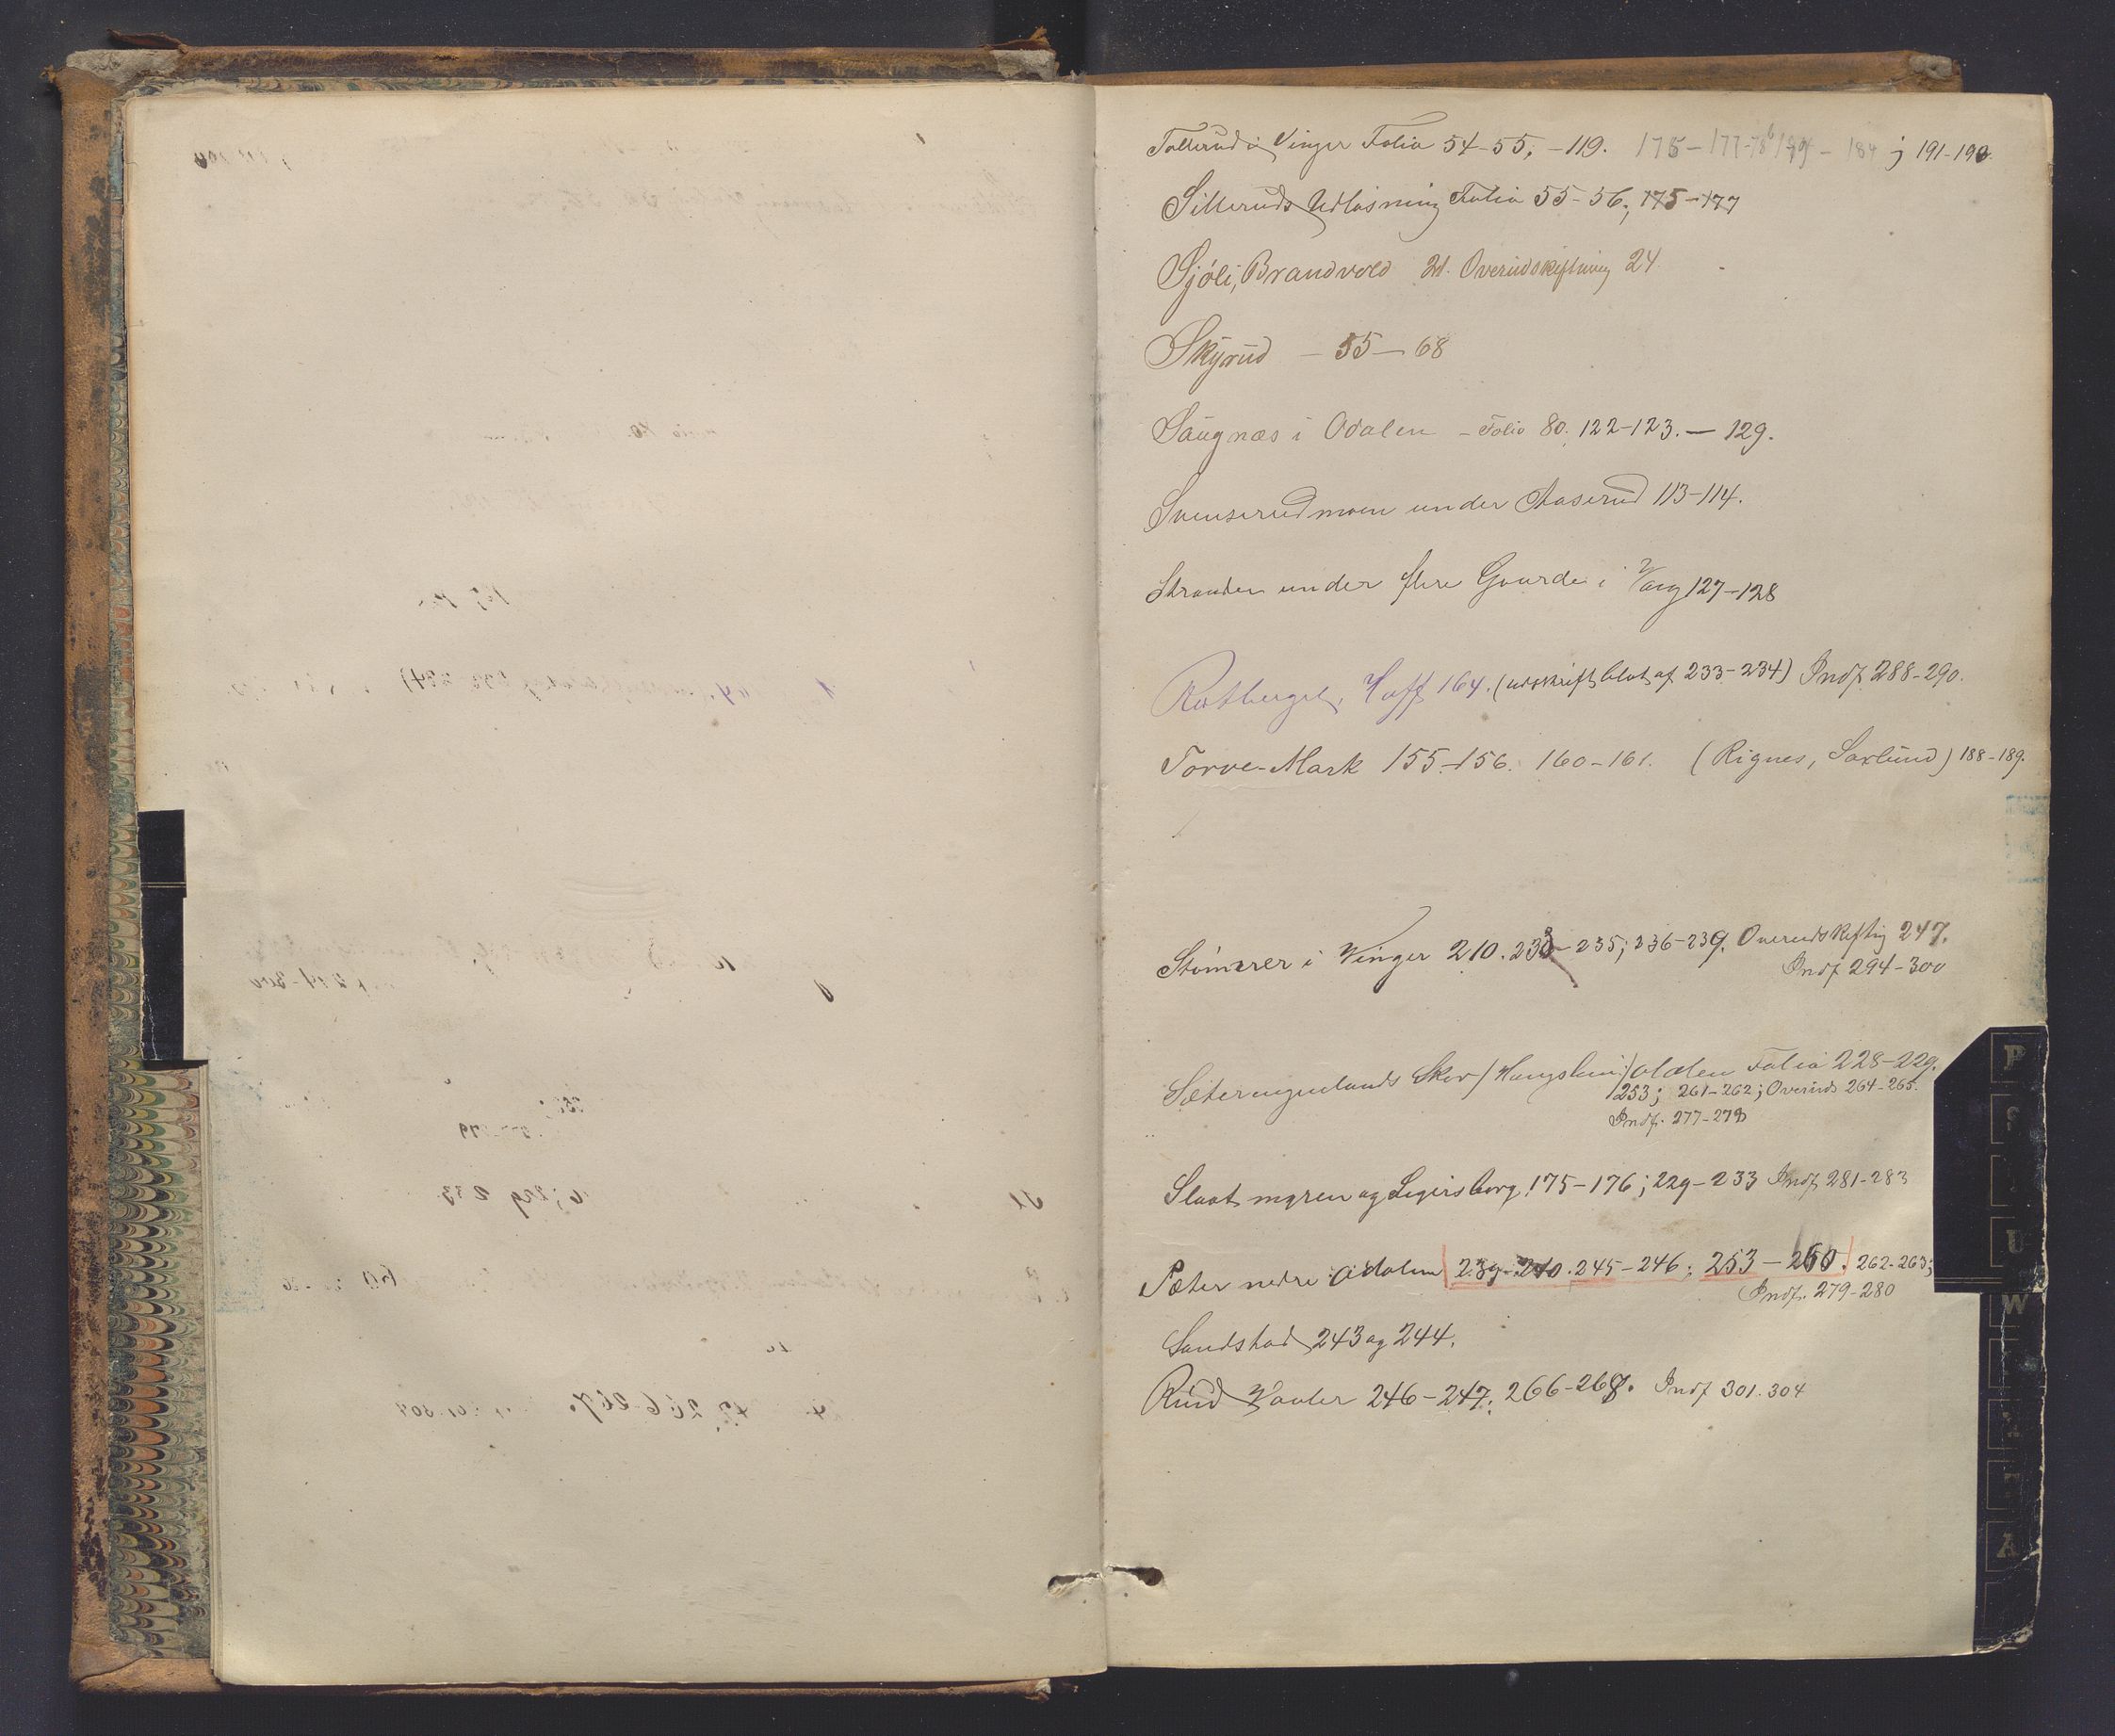 Tallerud i Vinger Folio 54-55, -119. 175-177-78 179-184; 191-193.
Silleruds Udløsning Folio 55-56; 175-177
Sjöli, Brandvold Overudskiftning 24
Skyrud - 55-68
Saugnæs i Odalen - Folio 80. 122-123. - 129.
Svenserudmoen under Aaserud 113-114.
Stranden under flere Gaarde i Vang 127-128
Rotberget, Hoff 164. (udskrift blot af 233-234) Indf. 288-290.
Torve-Mark 155-156. 160-161. (Rignes, Saxlund) 188-189.
Stömerer i Vinger 210. 233-235; 236-239. Overudskiftig 247.
Indf 294-300
Sæterengenlunds Skov Odalen Folio 228-229.
253; 261-262; Overuds 264-265.
Indf. 277-279
Slaatmyren og Legersberg 175-176; 229-233 Indf 281-283
Sæter nedre i Odalen 239-240. 245-246; 253-260. 262-263;
Indf. 279-280
Sandstad 243 og 244.
Rud Vaaler 246-247; 266-267. Indf 301-304
P
U
W
A